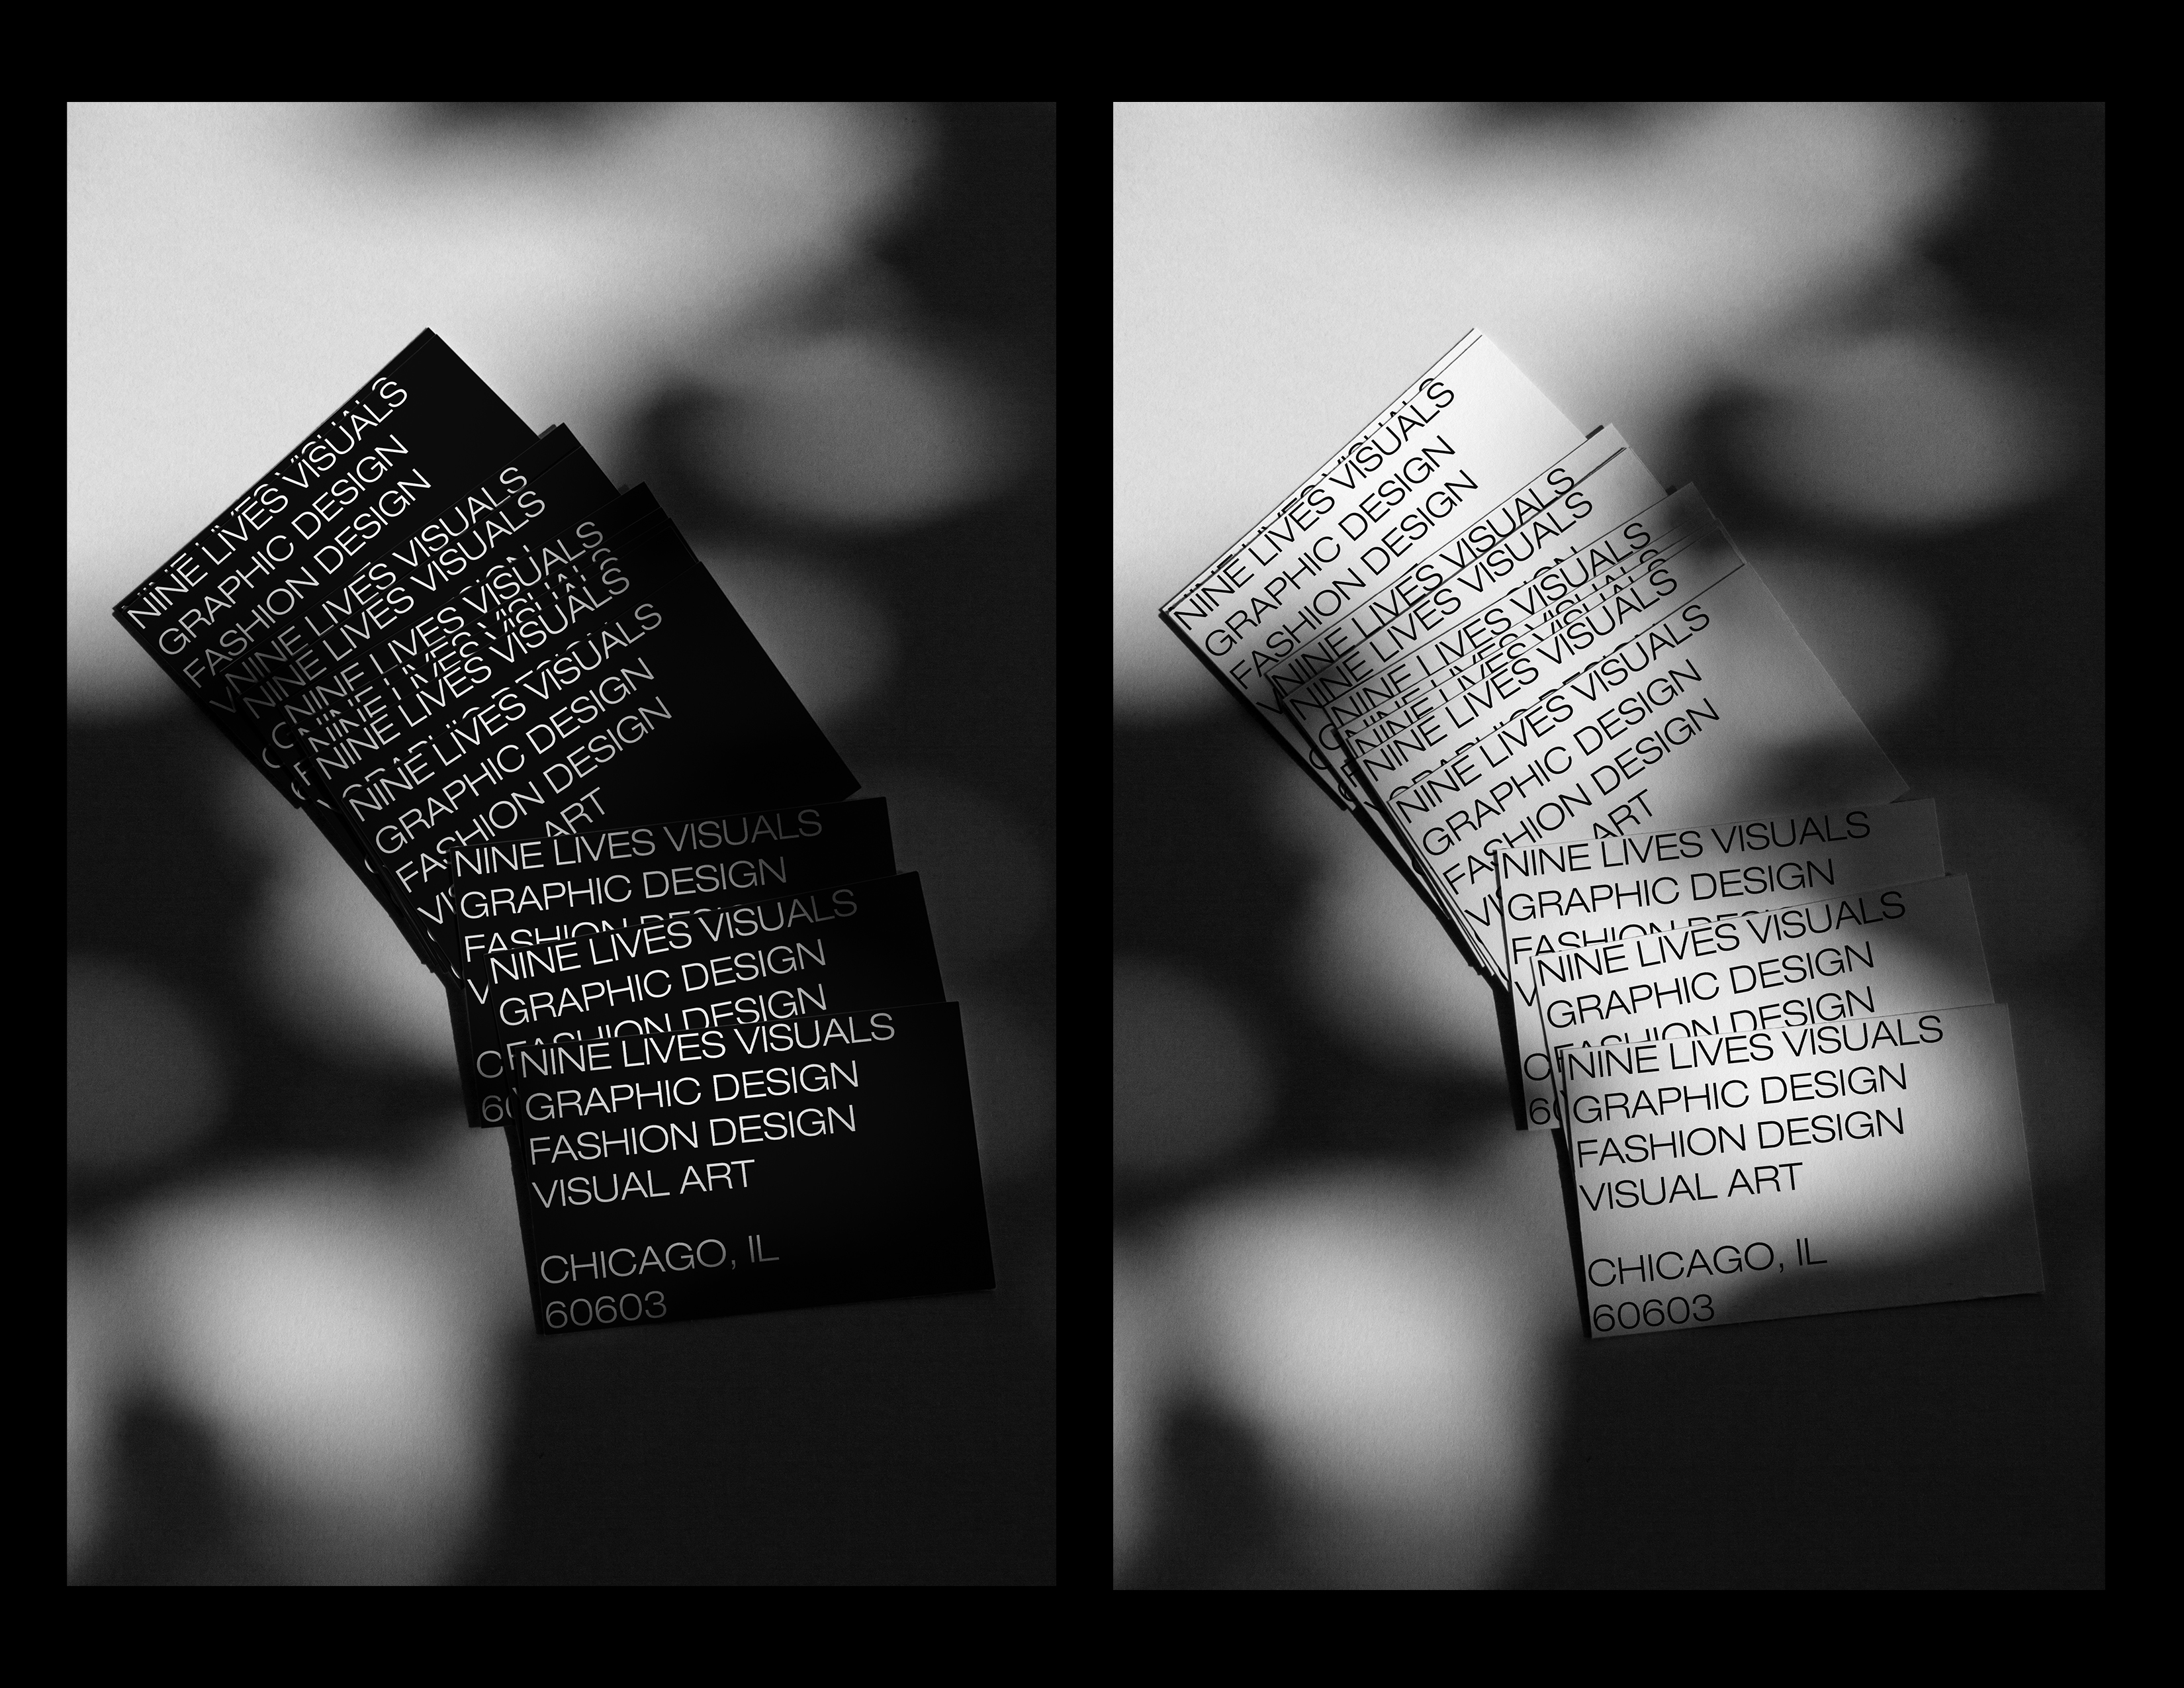 NINE LIVES VISUALS
GRAPHIC DESIGN
FASHION DESIGN
NINE LIVES VISUALS
NINE LIVES VISUALS
NINE LIVES VISUALS
NINE LIVES VISUALS
NINE LIVES VISUALS
GRAPHIC DESIGN
FASHION DESIGN
ART
NINE LIVES VISUALS
GRAPHIC DESIGN
FASHION DESIGN
NINE LIVES VISUALS
GRAPHIC DESIGN
FASHION DESIGN
NINE LIVES VISUALS
GRAPHIC DESIGN
FASHION DESIGN
VISUAL ART
CHICAGO, IL
60603
NINE LIVES VISUALS
GRAPHIC DESIGN
FASHION DESIGN
NINE LIVES VISUALS
NINE LIVES VISUALS
NINE LIVES VISUALS
NINE LIVES VISUALS
NINE LIVES VISUALS
GRAPHIC DESIGN
FASHION DESIGN
ART
NINE LIVES VISUALS
GRAPHIC DESIGN
FASHION DESIGN
NINE LIVES VISUALS
GRAPHIC DESIGN
FASHION DESIGN
NINE LIVES VISUALS
GRAPHIC DESIGN
FASHION DESIGN
VISUAL ART
CHICAGO, IL
60603